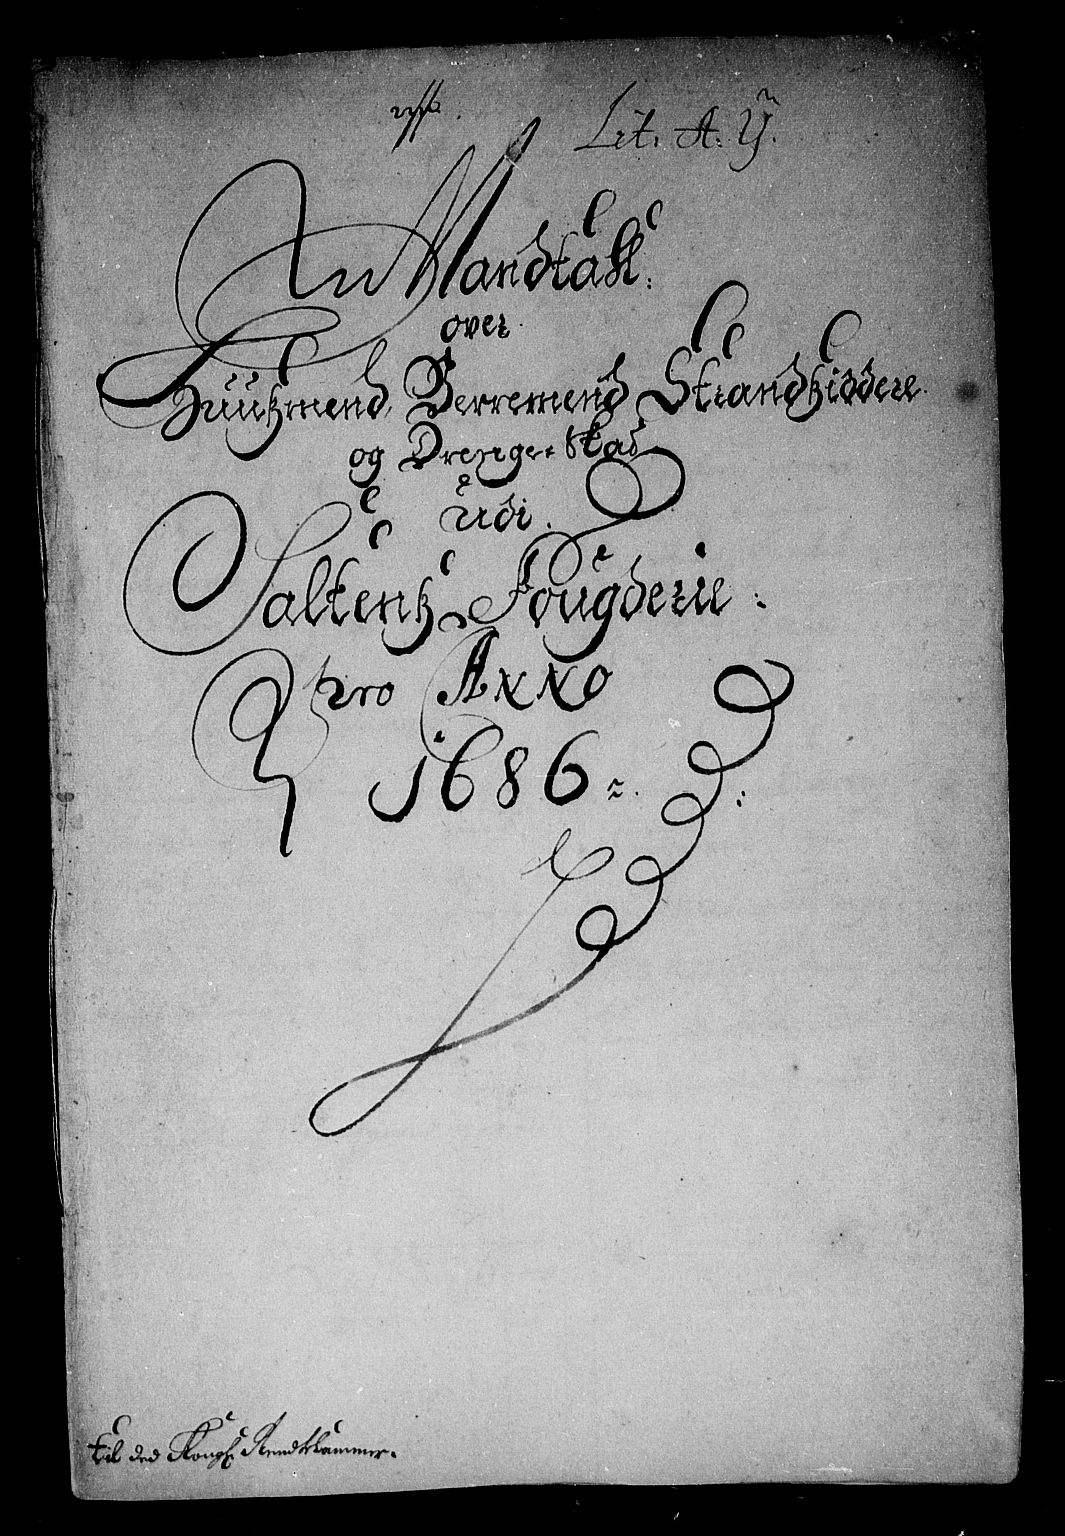 Lit. A. ÿ.
En Mandtall:
over
Huuszmend, Verremend Strandsiddere
og Drenge-Skat
udi.
Saltensz Fougderie:
pro Anno
1686
til ded Kongl: Rendtekammer.